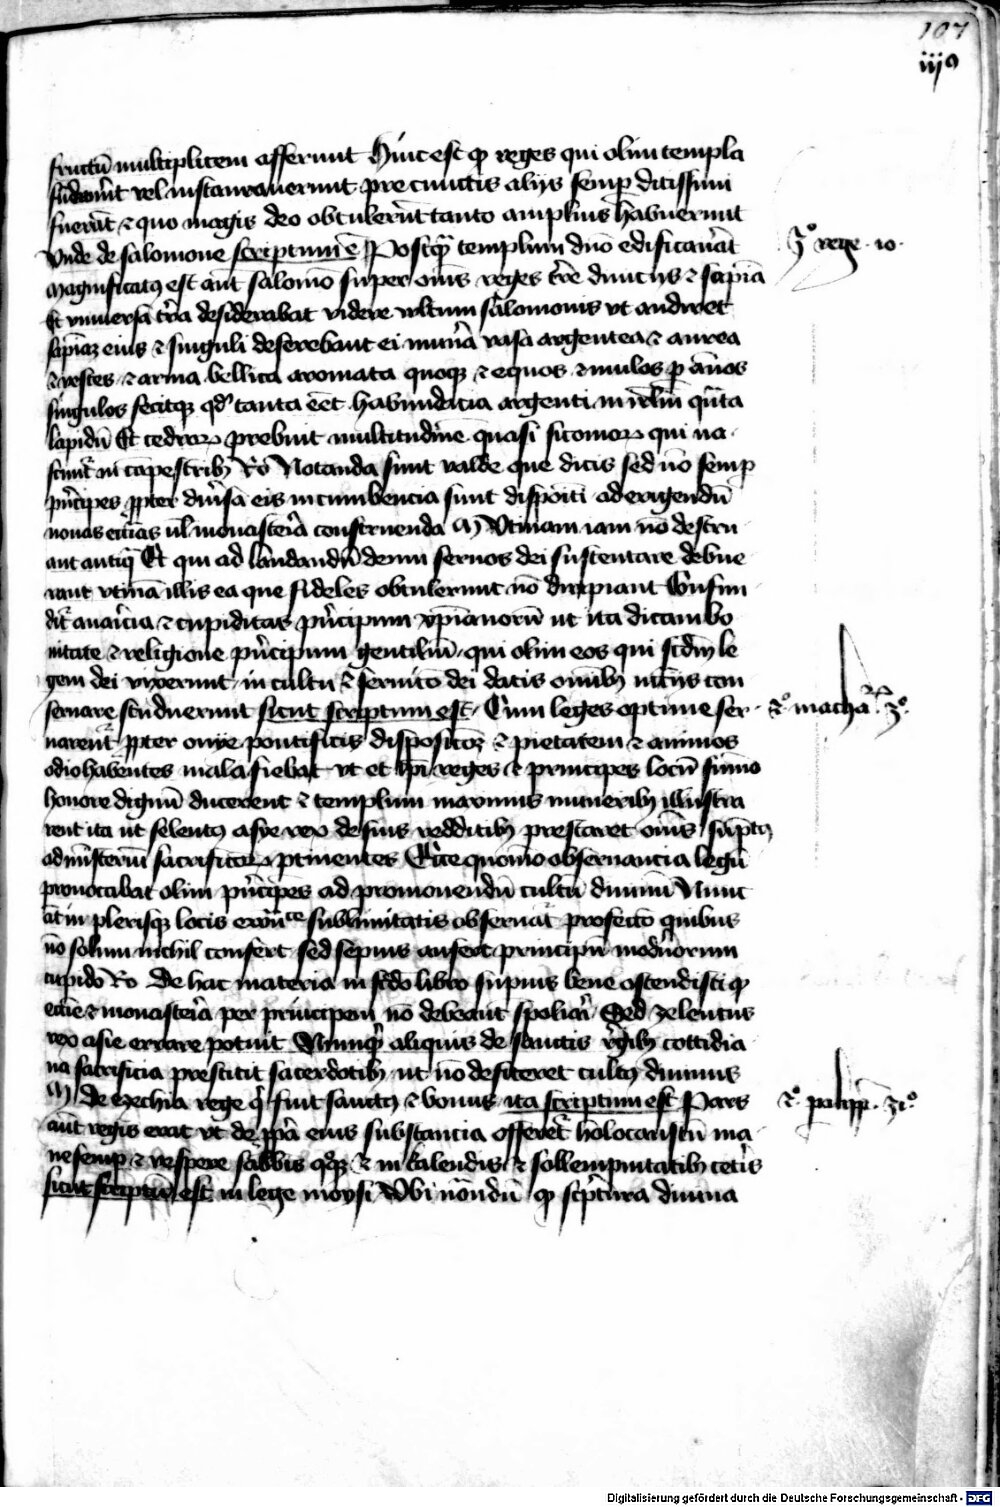 107
iijꝰ
fructū multiplicem afferunt Hinc est ꝙ reges qui olim templa
fūdauer̄t vel instaurauerunt pre cunctis alijs semꝑ ditissimi
fuerāt ⁊ quo magis deo obtuler̄t tanto amplius habuerunt
Vnde de salomone scriptum ē Postqᷓ templum dn̄o edificauāt
Magnificatꝰ est aūt salomō super om̄s reges t̄re diuicijs ⁊ sapiēia
Et vniuersa t̄ra desiderabat videre vltum salomonis vt audiret
sapiāz eius ⁊ singuli deferebant ei mun̄a vasa argentea ⁊ aurea
⁊ vestes ⁊ arma bellica aromata quoqꝫ ⁊ equos ⁊ mulos ꝑ ānos
singulos fecitqꝫ qd' tanta eēt habundācia argenti in irl̄m quāta
lapidū Et cedroꝝ prebuit multitudine quasi sicomoꝝ qui na
scūtᷣ in cāpestribꝫ Ro Notanda sunt valde que dicis sed nō semꝑ
pͥncipes ꝓpter diu̓sa eis incumbencia sunt dispoīti ad erigendū
nouas ecc̄ias vl̓ monasteria construenda M Vtinam iam nō destru
ant antiqᷓ Et qui ad laudandū deum seruos dei sustentare debue
rant vtinā illis ea que fideles obtulerunt nō diripiant Confun
ditᷣ auaricia ⁊ cupiditas pͥncipum xp̄ianorū ut ita dicam bo
nitate ⁊ religione pͥncipum gentiliū qui olim eos qui scd̄m le
gem dei vixerunt in cultu ⁊ seruicō dei datis om̄ibꝫ
seruare studuerunt sicut scriptum est Cum leges optime ser
uarentᷣ ꝓpter onye pontificis disposicōꝫ ⁊ pietatem ⁊ animos
odio habentes mala fiebat vt et ip̄i reges ⁊ principes locū sūmo
honore dignū ducerent ⁊ templum maximis muneribꝫ illustra
rent ita ut selentꝰ asye rex de suis redditibꝫ prestaret om̄s sūptꝰ
ad mīsteriū sacrificioꝝ ptinentes Ecce quomō obseruancia legū
prouocabat olim pͥncipes ad promouendū cultū diuinū Nunc
aūt in plerisqꝫ locis sublimitatis obseruatᷣ profecto quibus
nō solum nichil confert sed sepius aufert principū modernorum
cupido Ro De hac materia in scd̄o libro supius bene ostendisti ꝙ
ecc̄ie ⁊ monasteria per principem nō debeant spoliari Sed zelentus
rex asie errare potuit Nunqͥd aliquis de sanctis regibꝫ cottidia
na sacrificia prestitit sacerdotibꝫ ut nō deficeret cultꝰ diuinus
M De ezechia rege qͥ fuit sanctꝰ ⁊ bonus ita scriptum est Pars
aūt regis erat vt de ꝓp̄a eius substancia offerretᷣ holocaustū ma
ne semꝑ ⁊ vespere sabb̄is qꝫqꝫ ⁊ in kalendis ⁊ sollempnitatibꝫ cet̄is
sicut scriptū est in lege moysi Vbi nōtandū ꝙ scͥptura diuina
3° rege · 10 ·
2° machā 3°
2° palipp̄ 31°
Digitalisierung gefördert durch die Deutsche Forschungsgemeinschaft - DFG